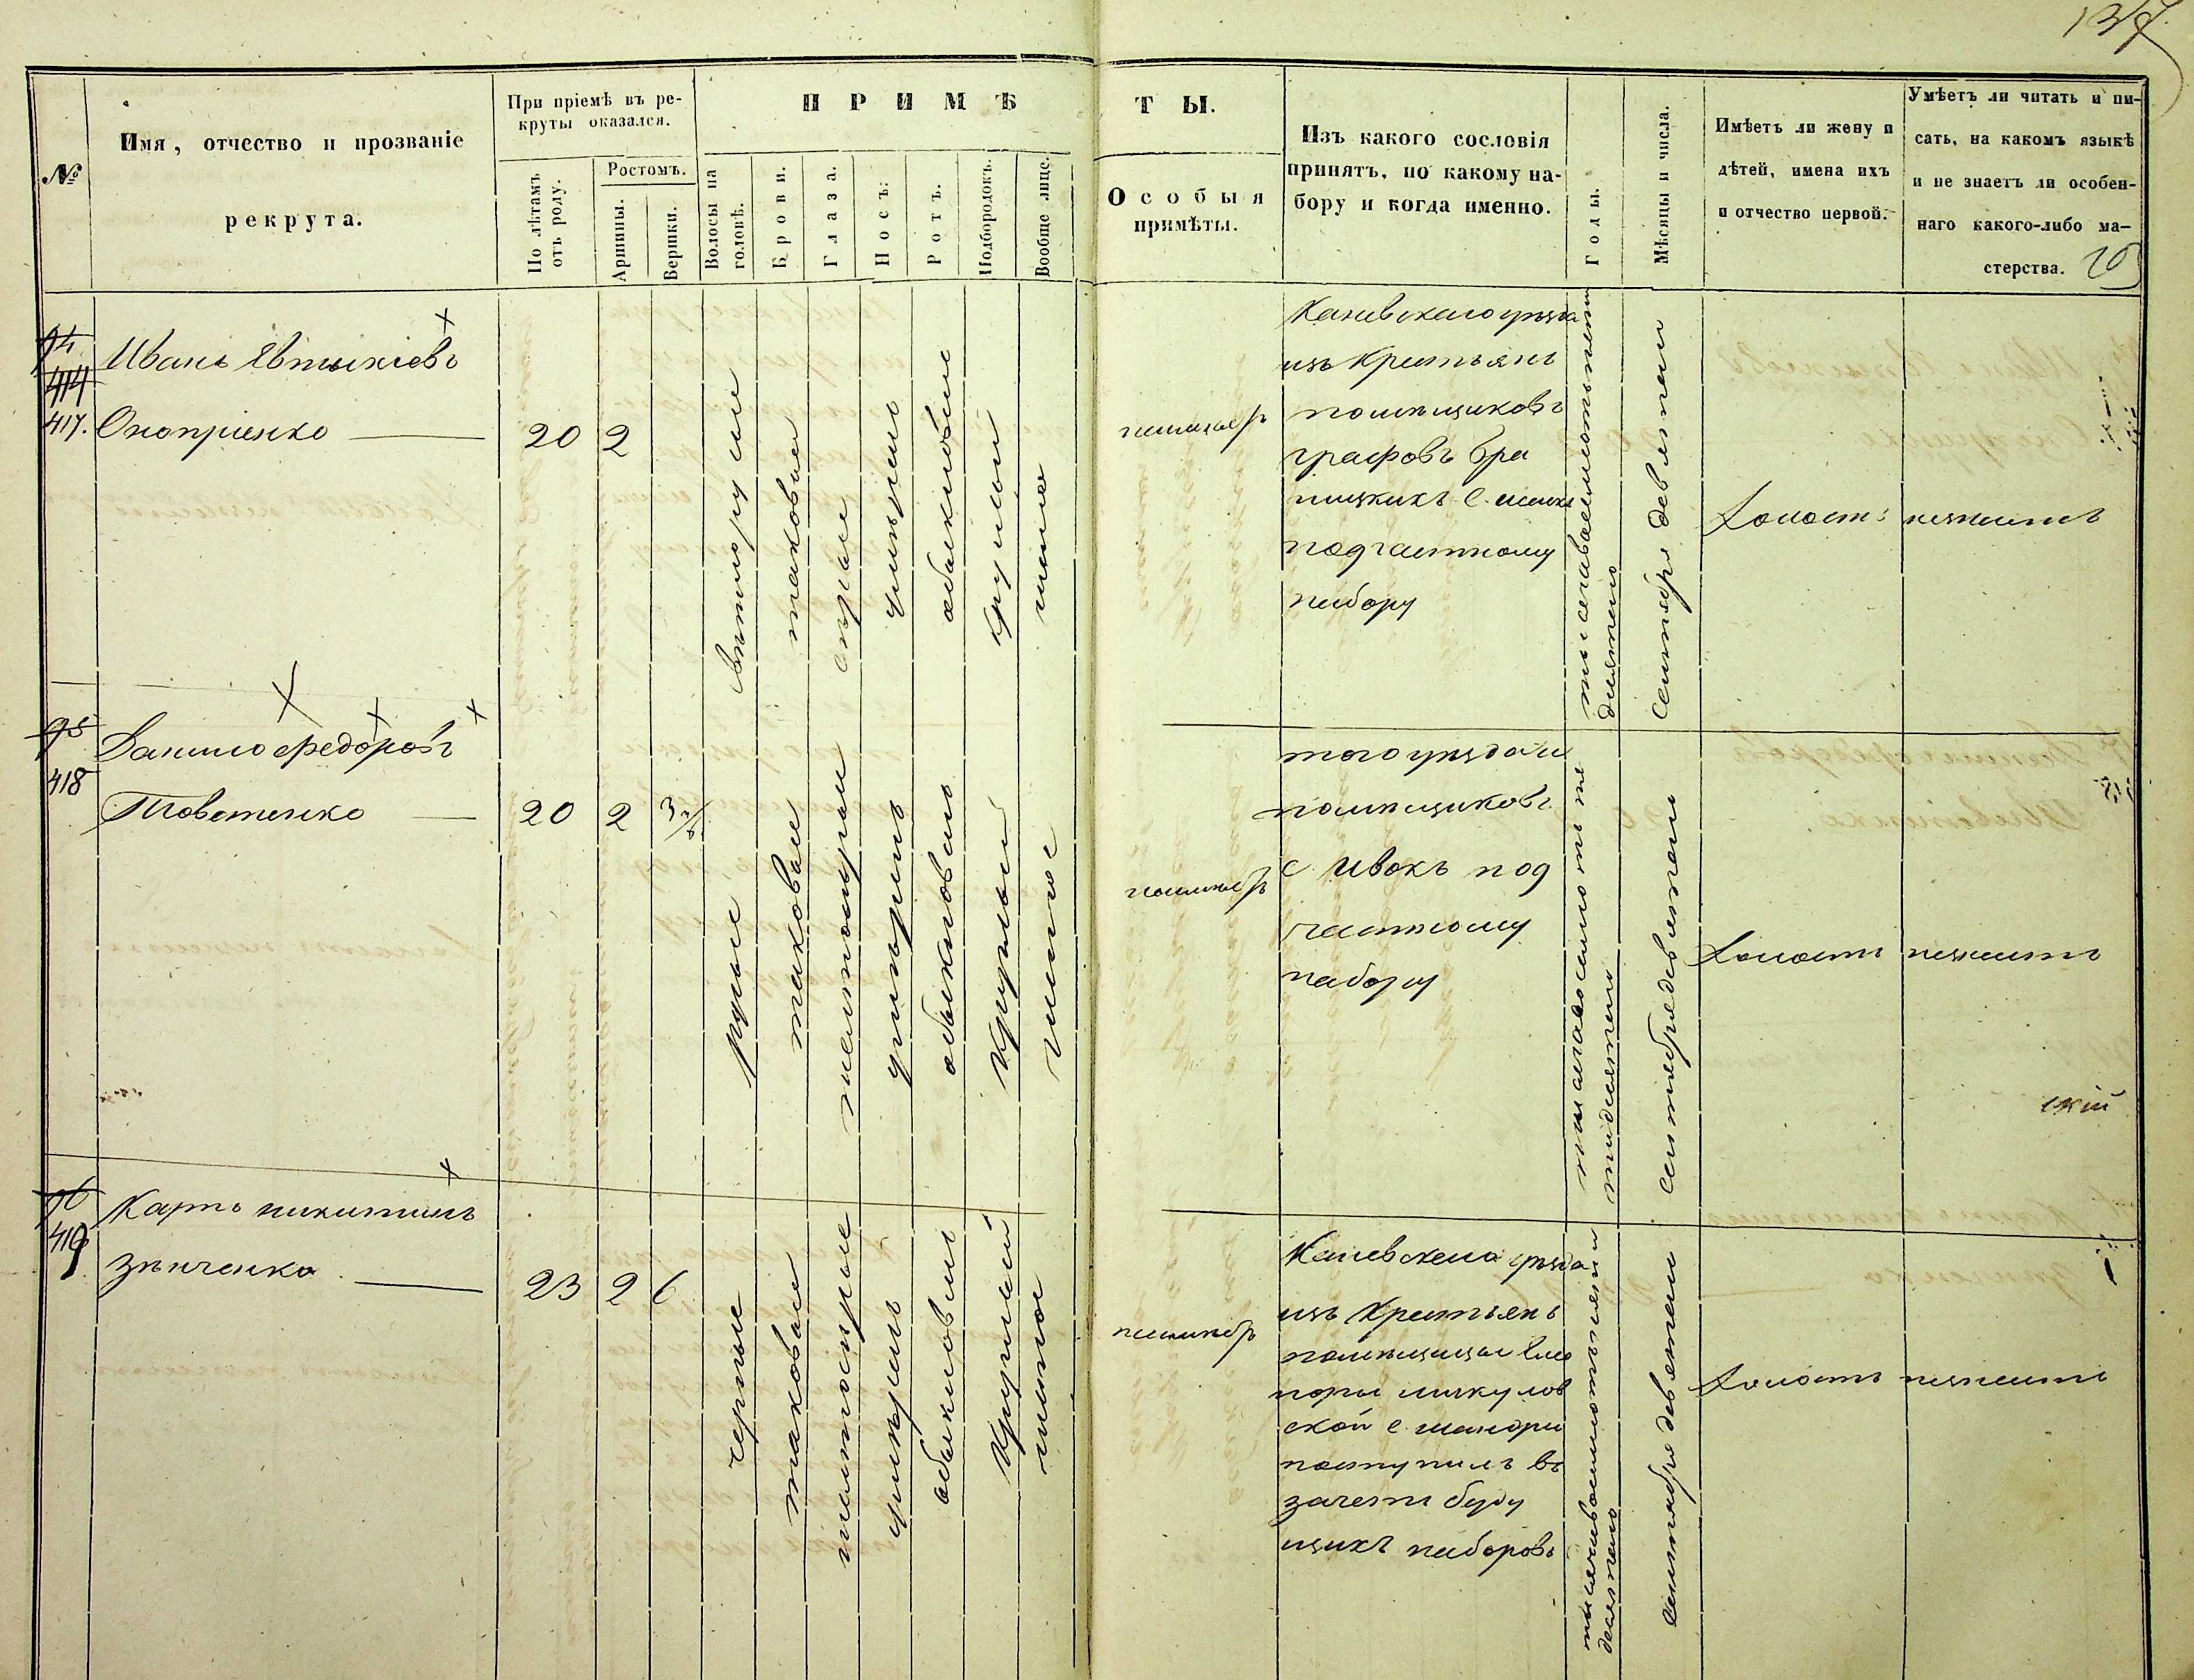 137
№
Имя, отчество и прозваніе
рекрута.
При пріемѣ въ ре-
круты оказался.
По лѣтамъ
отъ роду.
Ростомъ.
Аршины.
Вершки.
ПРИМѢ
Волосы на
головѣ.
Брови.
Глаза.
Носъ.
Ротъ.
Подбородокъ.
Вообще лице.
ТЫ.
Особыя
примѣты.
Изъ какого сословія
принятъ, по какому на-
бору и когда именно.
Годы.
Мѣсяцы и числа.
Имѣетъ ли жену и
дѣтей, имена ихъ
и отчество первой.
Умѣетъ ли читать и пи-
сать, на какомъ языкѣ
и не знаетъ ли особен-
наго какого-либо ма-
стерства.
94
414
417.
Иванъ Евтихіевъ
Оноприенко
20
2
таковыи
серые
обыкновыи
круглыи
Каневскаго уезда
изъ крестьянъ
помѣщиковъ
графовъ Бра
ницкихъ с.
подчастному
набору
сентября девятаго
Холостъ
незнаетъ
95
418
Данило Федоровъ
20
2
3
русые
таковыи
обыкновыи
круглыи
чистое
того уезда и
помѣщиковъ
с Ивокъ под
частному
набору
сентября девятаго
Холостъ
незнаетъ
ский
96
419
Карпъ Никитинъ
Зѣнченко
23
2
6
черные
таковыи
обыкновыи
круглый
чистое
Каневскаго уезда
изъ крестьянъ
помѣщицы Еле
ской с
поступилъ въ
зачетъ буду
щихъ наборовъ
сентября девятаго
Холостъ
незнаетъ